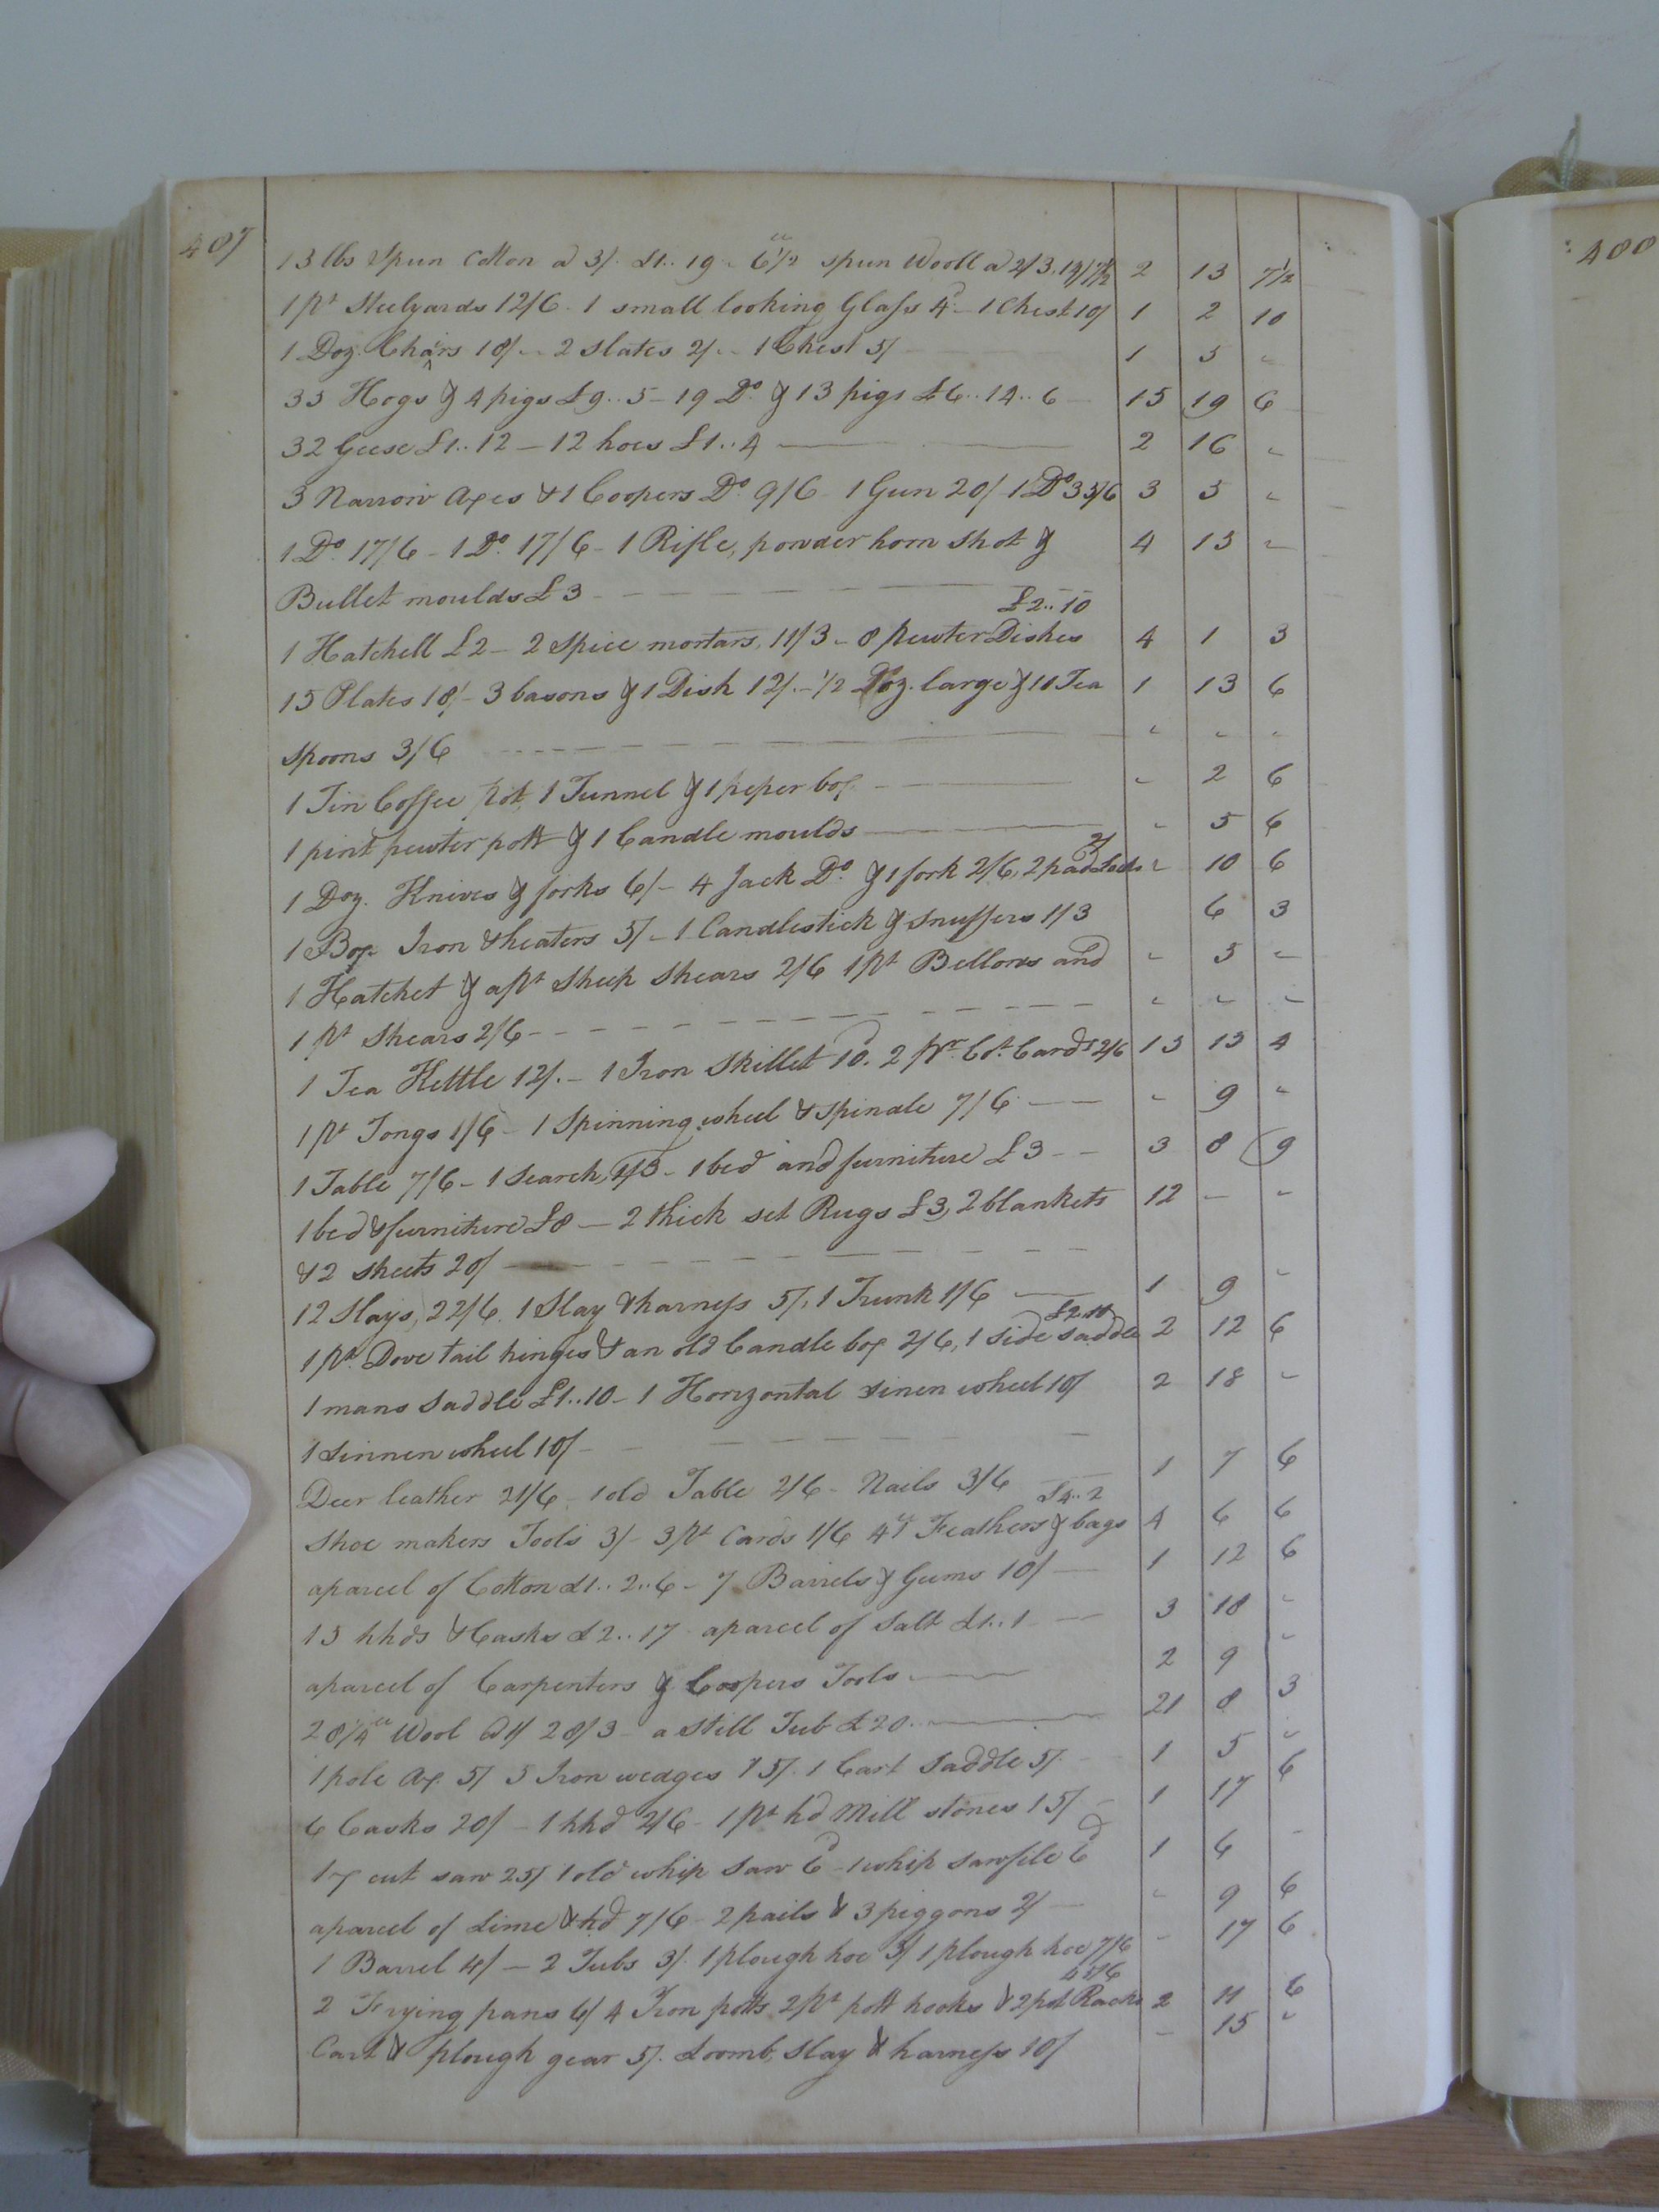 407
13 lbs Spun Cotton a 3/. £1..19 - 6 1/2 spun Wooll a 2/3. 14/7½ 2 13 7½
1 pr Steelyards 12/6 - 1 small looking Glass 4d - 1 Chest 10/ 1 2 10
1 Doz. Chairs 18/ - 2 Slates 2/ - 1 Chest 5/ 1 5 "
33 Hogs & 4 pigs £9..5 - 19 Do & 13 pigs £6..14..6 15 19 6
32 Geese £1..12 - 12 hoes £1..4 2 16 "
3 Narrow Axes & 1 Coopers Do 9/6 1 Gun 20/ - 1 Do 35/6 3 5 "
1 Do 17/6 - 1 Do 17/6 - 1 Rifle, powder horn Shot & 4 15 "
Bullet moulds £3
1 Hatchell £2 - 2 Spice mortars, 11/3 - 8 pewter Dishes £2..10 4 1 3
15 Plates 18/ - 3 basons & 1 Dish 12/. - ½ Doz. large & 10 Tea 1 13 6
Spoons 3/6 " " "
1 Tin Coffee pot, 1 Tunnel & 1 peper box " 2 6
1 pint pewter pott & 1 Candle moulds " 5 6
1 Doz. Knives & forks 6/ - 4 Jack Do & 1 fork 2/6, 2 padlocks 2/ " 10 6
1 Box Iron & heaters 5/ - 1 Candlestick & Snuffers 1/3 6 3
1 Hatchet & a pr Sheep Shears 2/6 1 pr Bellows and " 5 "
1 pr Shears 2/6 " " "
1 Tea Kettle 12/. - 1 Iron Skillet 10d. 2 pr. Cot. Cards 2/6 13 15 4
1 pr Tongs 1/6 - 1 Spinning wheel & Spindle 7/6 " 9 "
1 Table 7/6 - 1 Search, 1/3 - 1 bed and furniture £3 3 8 9
1 bed & furniture £8 - 2 thick set Rugs £3, 2 blankets 12 - "
& 2 Sheets 20/
12 Slays, 22/6. 1 Slay & harness 5/, 1 Trunk 1/6 1 9 "
1 pr Dove tail hinges & an old Candle box 2/6, 1 Side Saddle £2.10 2 12 6
1 mans Saddle £1..10 - 1 Horizontal Linen wheel 10/ 2 18 "
1 Linnen wheel 18/
Deer leather 21/6 - 1 old Table 2/6 - Nails 3/6 1 7 6
Shoe makers Tools 3/ - 3 pr Cards 1/6 41 Feathers & bags £4..2 4 6 6
a parcel of Cotton £1..2..6 - 7 Barrels & Gums 10/ 1 12 6
13 hhds & Casks £2..17 - a parcel of Salt £1..1 3 18 "
a parcel of Carpenters & Coopers Tools 2 9 "
28¼ Wool @ 1/ 28/3 - a Still Tub £20. 21 8 3
1 pole Ax. 5/ 5 Iron wedges 15/. 1 Cart Saddle 5/. 1 5 "
6 Casks 20/ - 1 hhd 2/6 - 1 pr hd Mill stones 15/ 1 17 6
1 cut saw 25/ 1 old whip Saw 6d - 1 whip saw file 6d 1 6 -
a parcel of Lime & hd 7/6 - 2 pails & 3 piggons 2/ " 9 6
1 Barrel 4/ - 2 Tubs 3/. 1 plough hoe 3/ 1 plough hoe 7/6 - 17 6
2 Frying pans 6/ 4 Iron potts. 2 pr pott hooks & 2 pot Racks 45/6 2 11 6
Cart & plough gear 5/. Loomb, Slay & harness 10/ - 15 "
: 408